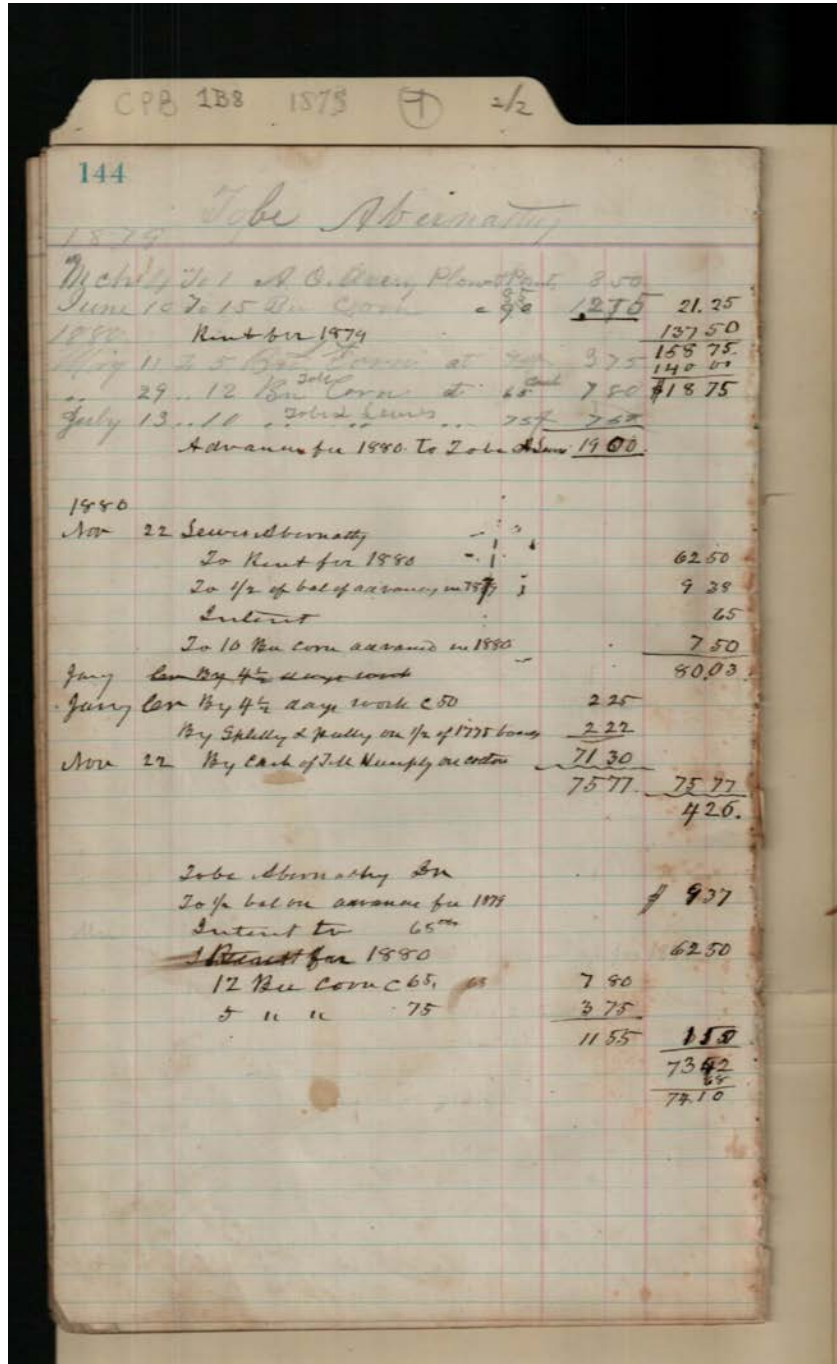 CPB 1B8 1879 1 2/2
144
Tobe Abernatty
1879
Mch 14 To 1 A. O. Avery Plow & Point 8 50
June 10 To 15 Bu Corn 12 75 21.25
Rent for 1879 137 50
1880 158 75.
May 11 To 5 Bu Corn at 3 75 140 00
" 29 " 12 Bu Tobe Corn at 65 7 80 $18 75
July 13 " 10 " Tobe & Lewis " 75 7 50
Advances for 1880 to Tobe & Lewis 19 00.
1880
Nov 22 Lewis Abernatty
To Rent for 1880 62 50
To 1/2 of bal of advances in 1879 9 38
Interest 65
To 10 Bu Corn advanced in 1880 7 50
Jany Cr By 4½ days work 80.03
Jany Cr By 4½ days work c 50 2 25
By on 1/2 of 1775 2 22
Nov 22 By Cash of on cotton 71 30
75 77. 75 77
4 26.
Tobe Abernathy Dr
To ½ bal on advance for 1879 $ 9 37
Interest to 65
Rent for 1880 62 50
12 Bu Corn c 65, 7 80
5 " " 75 3 75
11 55 1 55
73 42
68
74.10